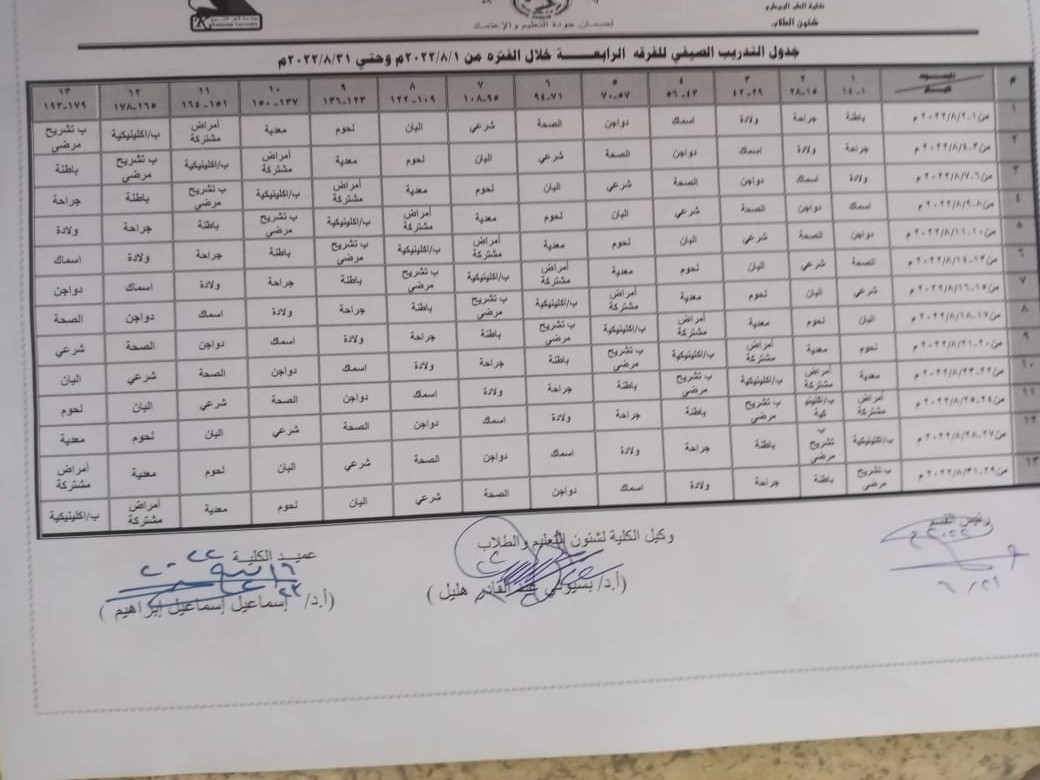 كلية الطب البيطري
شئون الطلاب
لضمان جودة التعليم والإعتماد
Kafrelsheikh University
جدول التدريب الصيفي للفرقه الرابعــــة خلال الفتره من ٢٠٢٢/٨/١م وحتي ٢٠٢٢/٨/٣١م
م ١ ٢ ٣ ٤ ٥ ٦ ٧ ٨ ٩ ١٠ ١١ ١٢ ١٣
١-١٤ ١٥-٢٨ ٢٩-٤٢ ٤٣-٥٦ ٥٧-٧٠ ٧١-٩٤ ٩٥-١٠٨ ١٠٩-١٢٢ ١٢٣-١٣٦ ١٣٧-١٥٠ ١٥١-١٦٤ ١٦٥-١٧٨ ١٧٩-١٩٣
١ من١-٢٠٢٢/٨/٢ م باطنة جراحة ولادة اسماك دواجن الصحة شرعي البان لحوم معدية أمراض مشتركة ب/اكلينيكية ب تشريح مرضي
٢ من٣-٢٠٢٢/٨/٤ م جراحة ولادة اسماك دواجن الصحة شرعي البان لحوم معدية أمراض مشتركة ب/اكلينيكية ب تشريح مرضي باطنة
٣ من٦-٢٠٢٢/٨/٧ م ولادة اسماك دواجن الصحة شرعي البان لحوم معدية أمراض مشتركة ب/اكلينيكية ب تشريح مرضي باطنة جراحة
٤ من٨-٢٠٢٢/٨/٩ م اسماك دواجن الصحة شرعي البان لحوم معدية أمراض مشتركة ب/اكلينيكية ب تشريح مرضي باطنة جراحة ولادة
٥ من١٠-٢٠٢٢/٨/١١ م دواجن الصحة شرعي البان لحوم معدية أمراض مشتركة ب/اكلينيكية ب تشريح مرضي باطنة جراحة ولادة اسماك
٦ من١٣-٢٠٢٢/٨/١٤ م الصحة شرعي البان لحوم معدية أمراض مشتركة ب/اكلينيكية ب تشريح مرضي باطنة جراحة ولادة اسماك دواجن
٧ من١٥-٢٠٢٢/٨/١٦ م شرعي البان لحوم معدية أمراض مشتركة ب/اكلينيكية ب تشريح مرضي باطنة جراحة ولادة اسماك دواجن الصحة
٨ من١٧-٢٠٢٢/٨/١٨ م البان لحوم معدية أمراض مشتركة ب/اكلينيكية ب تشريح مرضي باطنة جراحة ولادة اسماك دواجن الصحة شرعي
٩ من٢٠-٢٠٢٢/٨/٢١ م لحوم معدية أمراض مشتركة ب/اكلينيكية ب تشريح مرضي باطنة جراحة ولادة اسماك دواجن الصحة شرعي البان
١٠ من٢٢-٢٠٢٢/٨/٢٣ م معدية أمراض مشتركة ب/اكلينيكية ب تشريح مرضي باطنة جراحة ولادة اسماك دواجن الصحة شرعي البان لحوم
١١ من٢٤-٢٠٢٢/٨/٢٥ م أمراض مشتركة ب/اكلينيكية ب تشريح مرضي باطنة جراحة ولادة اسماك دواجن الصحة شرعي البان لحوم معدية
١٢ من٢٧-٢٠٢٢/٨/٢٨ م ب/اكلينيكية ب تشريح مرضي باطنة جراحة ولادة اسماك دواجن الصحة شرعي البان لحوم معدية أمراض مشتركة
١٣ من٢٩-٢٠٢٢/٨/٣١ م ب تشريح مرضي باطنة جراحة ولادة اسماك دواجن الصحة شرعي البان لحوم معدية أمراض مشتركة ب/اكلينيكية
رئيس القسم
وكيل الكلية لشئون التعليم والطلاب
(أ.د/ بسيوني عبد القادر هليل )
عميد الكلية
(أ.د/ إسماعيل إسماعيل إبراهيم )